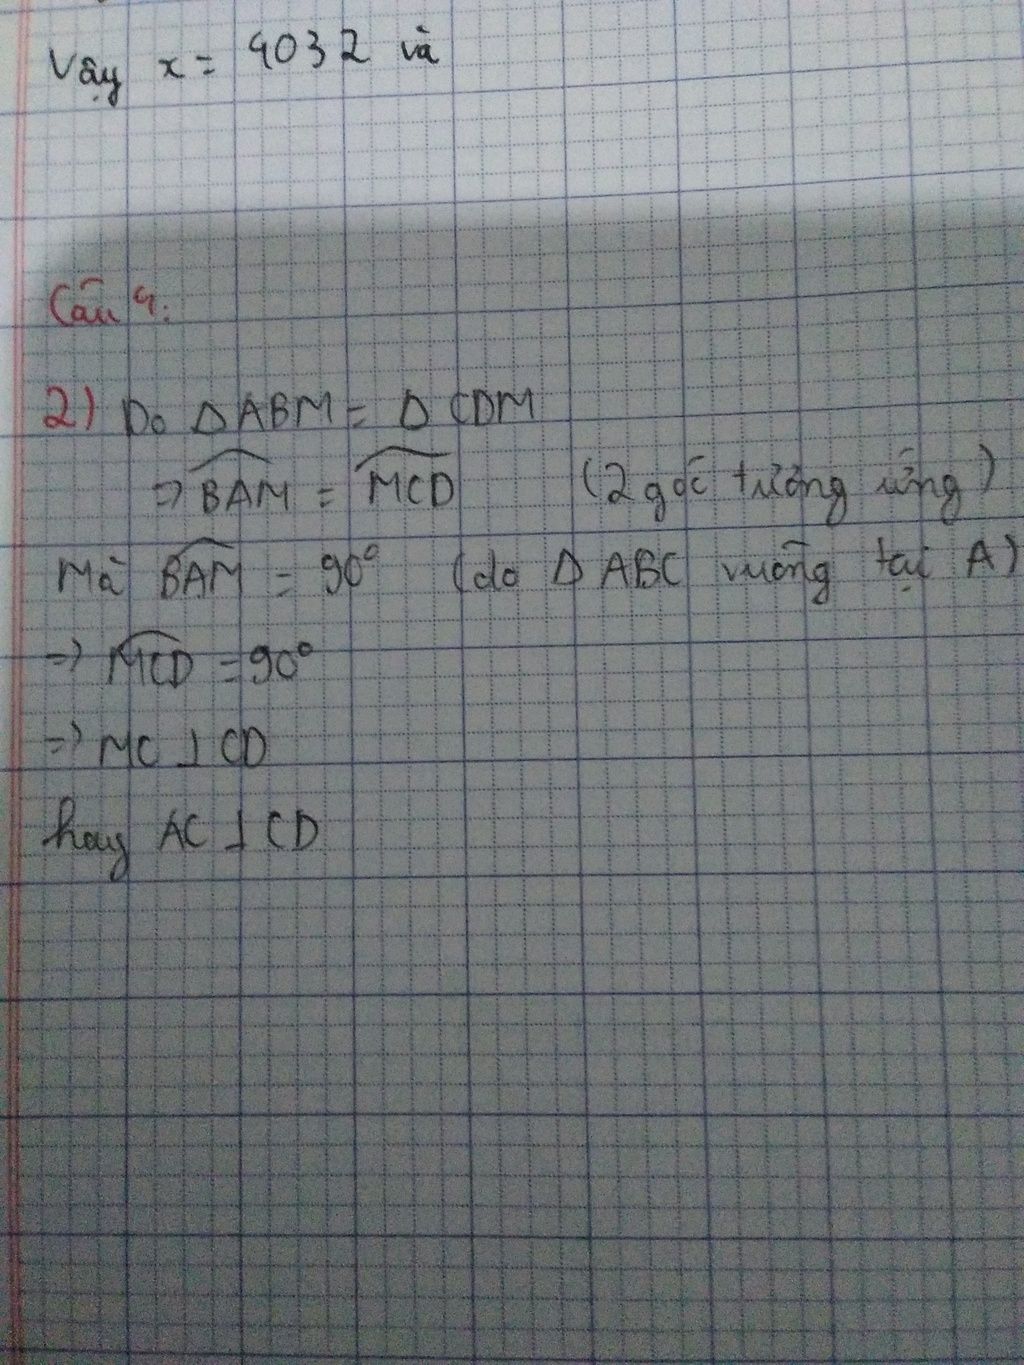 Vậy x = 4032 và
Câu 4:
2) Do Δ ABM = Δ CDM
=> BAM = MCD (2 góc tương ứng)
Mà BAM = 90° (do Δ ABC vuông tại A)
=> MCD = 90°
=> MC ⊥ CD
hay AC ⊥ CD